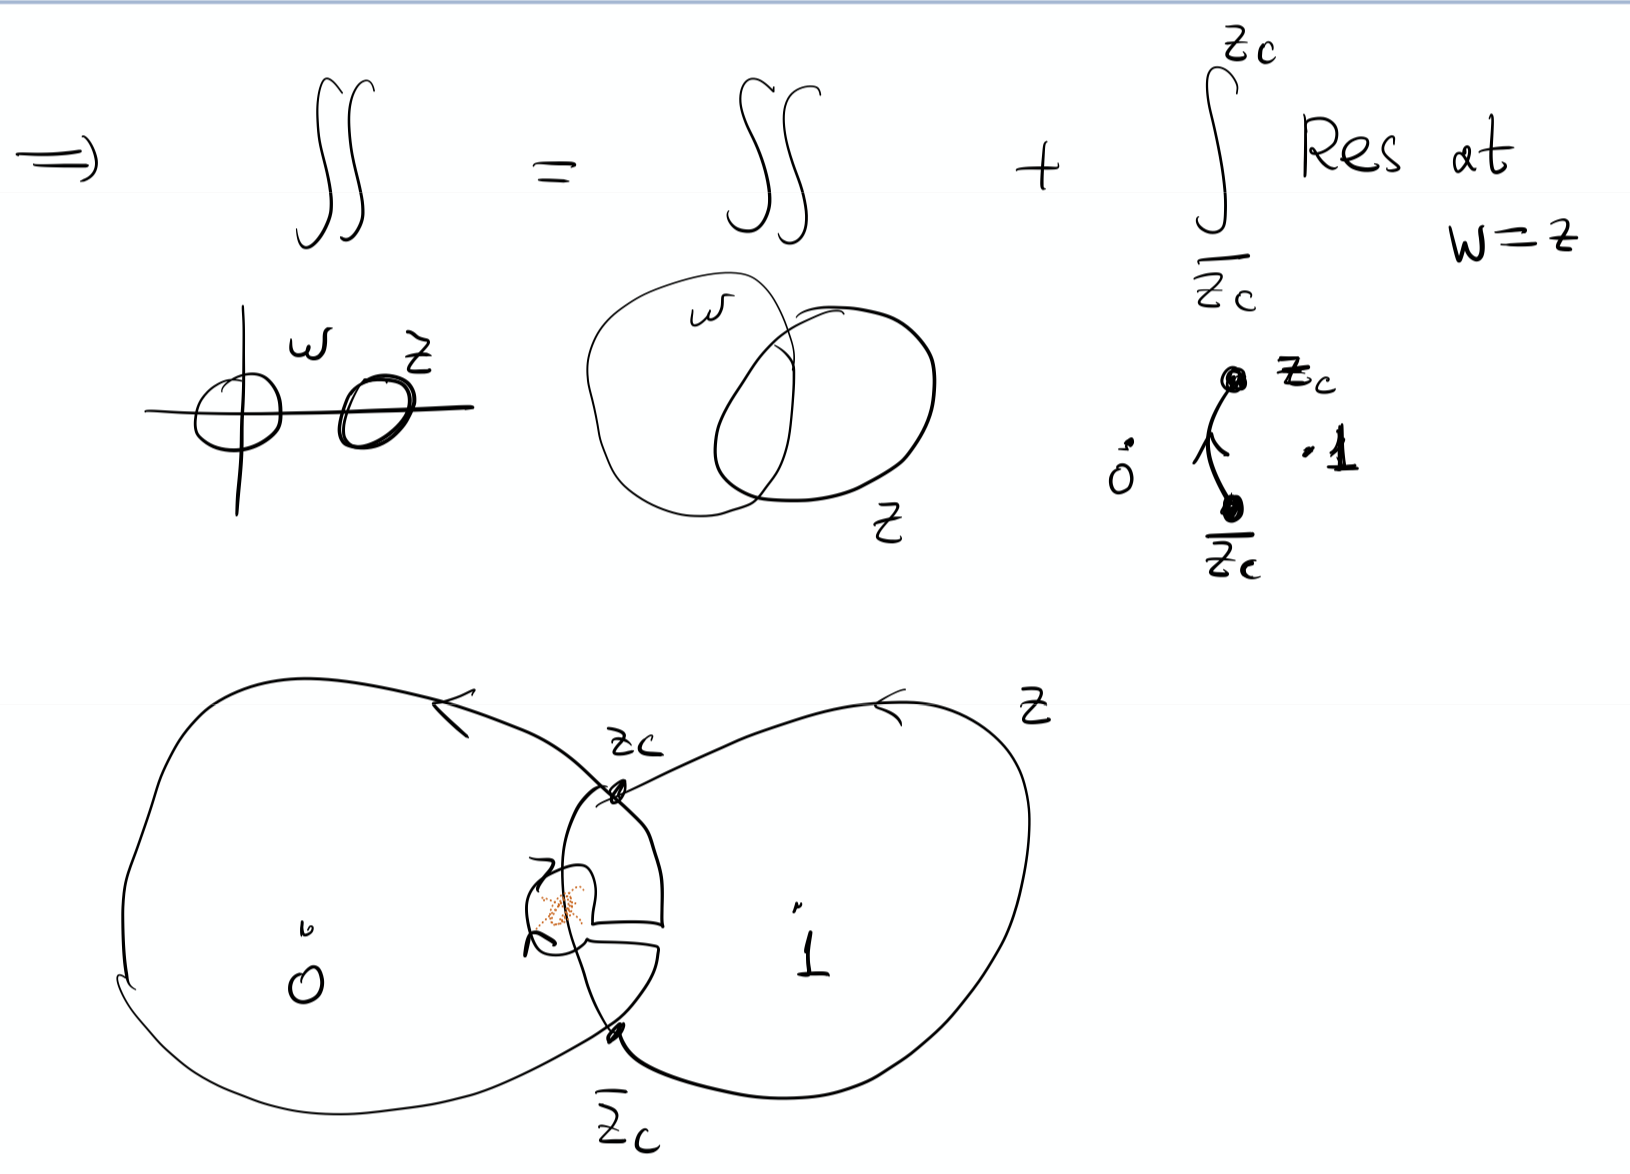 ⇒ ∬ = ∬ + ∫_{\overline{z_c}}^{z_c} Res at
w=z
w z
w
z
z_c
0 · 1
\overline{z_c}
z
z_c
0
1
\overline{z}_c